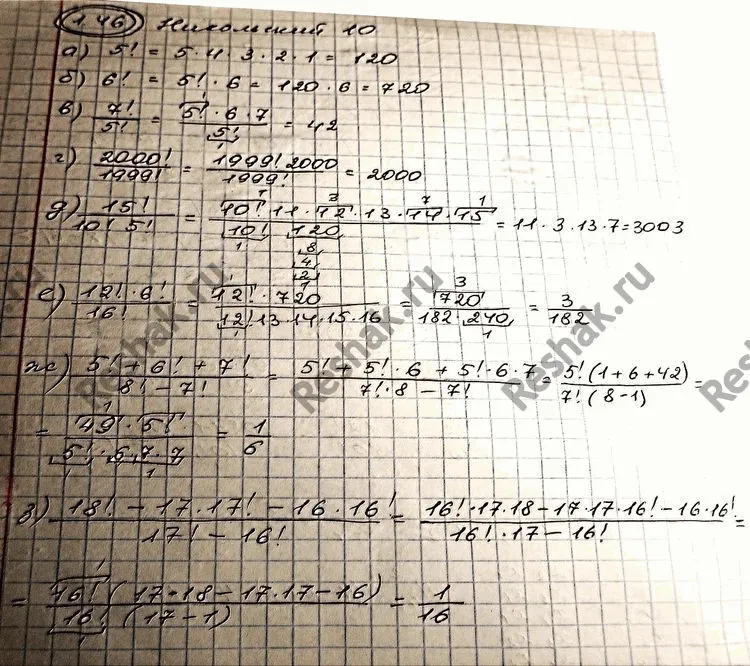 1.46 Никольский 10
а) 5! = 5·4·3·2·1 = 120
б) 6! = 5!·6 = 120·6 = 720
в) 7!/5! = 5!·6·7/5! = 42
г) 2000!/1999! = 1999!·2000/1999! = 2000
д) 15!/10!·5! = 10!·11·12·13·14·15/10!·120 = 11·3·13·7=3003
е) 12!·6!/16! = 12!·720/12!·13·14·15·16 = 720/182·240 = 3/182
ж) 5!+6!+7!/8!-7! = 5!+5!·6+5!·6·7/7!·8-7! = 5!(1+6+42)/7!(8-1) =
= 49·5!/5!·6·7·7 = 1/6
з) 18!-17·17!-16·16!/17!-16! = 16!·17·18-17·17·16!-16·16!/16!·17-16! =
= 16!(17·18-17·17-16)/16!(17-1) = 1/16
Reshak.ru
Reshak.ru
Reshak.ru
Reshak.ru
Reshak.ru
Reshak.ru